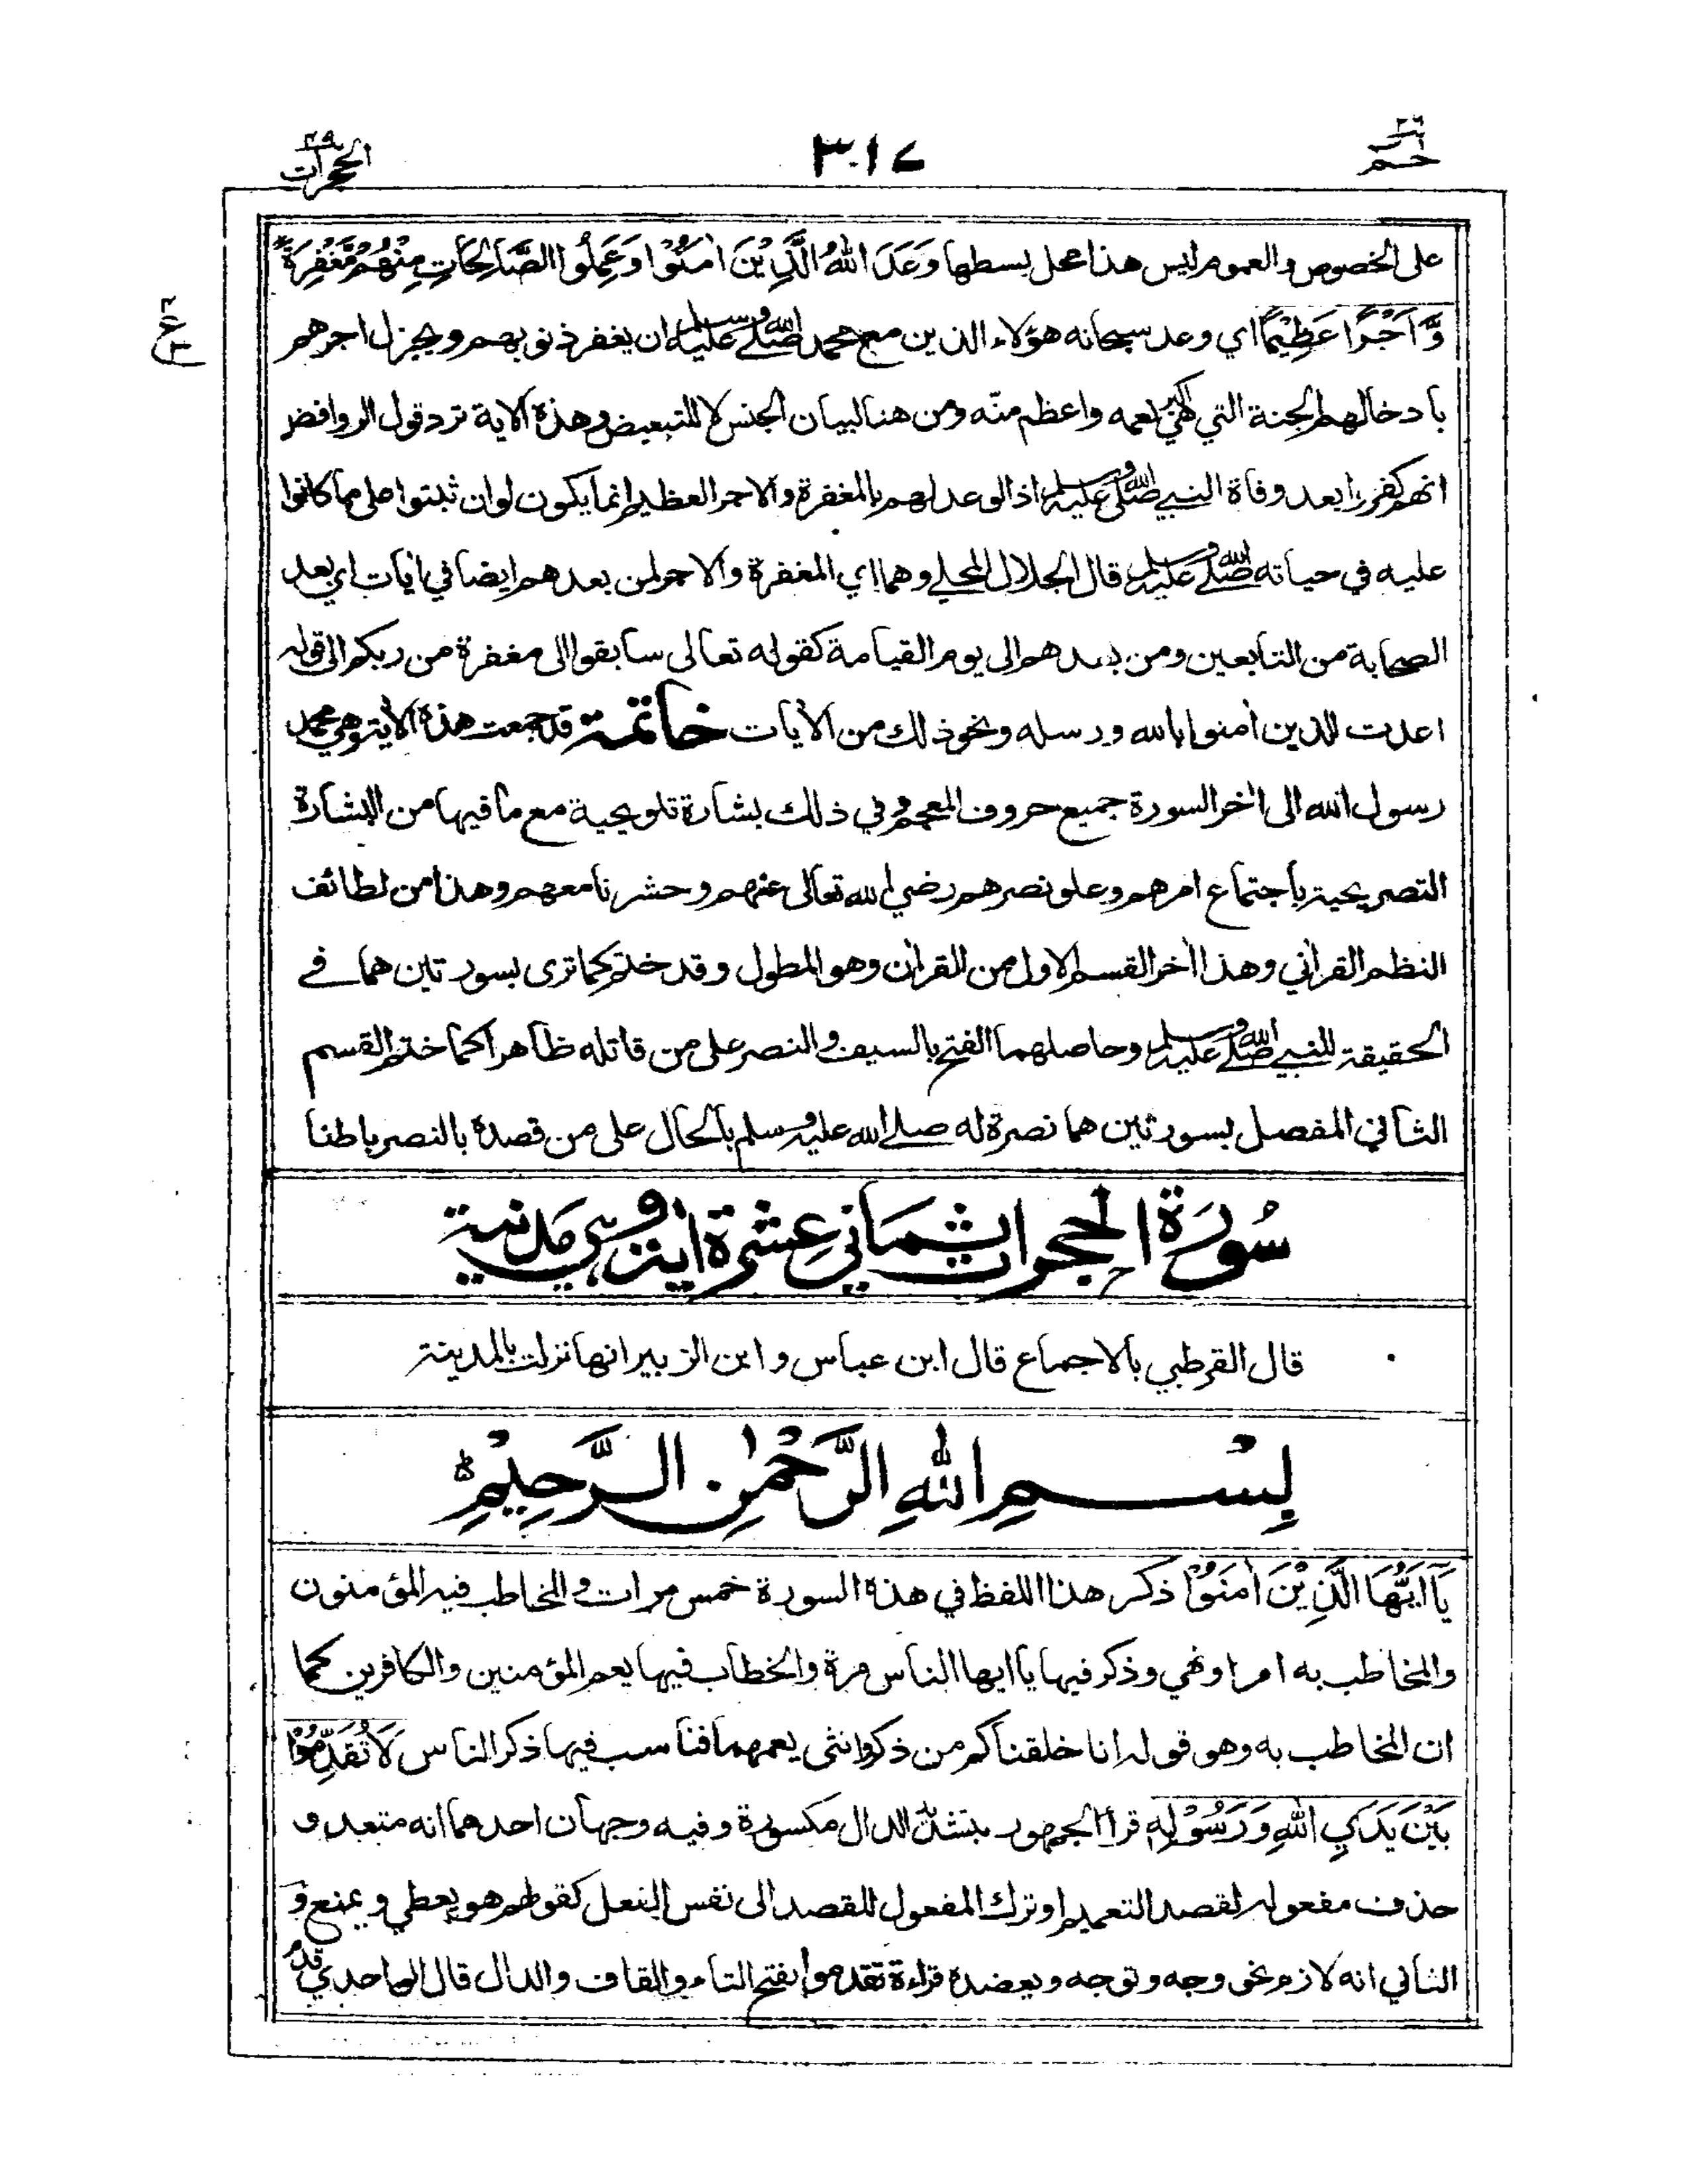 حم ٢٦
٣٠١٧
الحجرات ٤٩
على الخصوص والعموم ليس هذا محل بسطها وَعَدَ اللهُ الَّذِيْنَ اٰمَنُوْا وَعَمِلُوا الصَّالِحَاتِ مِنْهُمْ مَّغْفِرَةً
وَّاَجْرًا عَظِيْمًا اي وعد سبحانه هؤلاء الذين مع محمد صلى الله عليه وسلم ان يغفر ذنوبهم ويجزل اجرهم
بادخالهم الجنة التي هي اكبر نعمه واعظم منّه ومن هنا لبيان الجنس لا للتبعيض وهذه الاية ترد قول الروافض
انهم كفروا بعد وفاة النبي صلى الله عليه وسلم اذ الوعد لهم بالمغفرة والاجر العظيم انما يكون لو ان ثبتوا على ما كانوا
عليه في حياته صلى الله عليه وسلم قال الجلال المحلي وهما اي المغفرة والاجر لمن بعدهم ايضا في اٰيات اي بعد
الصحابة من التابعين ومن بعدهم الى يوم القيامة كقوله تعالى سابقوا الى مغفرة من ربكم الى قوله
اعدت للذين اٰمنوا بالله ورسله ونحو ذلك من الاٰيات خاتمة قد جمعت هذه الاٰية وهي محمد
رسول الله الى اٰخر السورة جميع حروف المعجم وفي ذلك بشارة تلويحية مع ما فيها من البشارة
التصريحية باجتماع امرهم وعلو نصرهم رضي الله تعالى عنهم وحشرنا معهم وهذا من لطائف
النظم القراٰني وهذا اٰخر القسم الاول من القراٰن وهو المطول وقد ختم كما ترى بسورتين هما في
الحقيقة للنبي صلى الله عليه وسلم وحاصلهما الفتح بالسيف والنصر على من قاتله ظاهرا كما ختم القسم
الثاني المفصل بسورتين هما نصرة له صلى الله عليه وسلم بالحال على من قصده بالنصر باطنا
سُورَة الحجرات ثماني عشرة اٰية وهي مدنية
قال القرطبي بالاجماع قال ابن عباس وابن الزبير انها نزلت بالمدينة
بِسْمِ اللهِ الرَّحْمٰنِ الرَّحِيْمِ
يَاۤاَيُّهَا الَّذِيْنَ اٰمَنُوْا ذكر هذا اللفظ في هذه السورة خمس مرات والمخاطب فيه المؤمنون
والمخاطب به امر او نهي وذكر فيها يا ايها الناس مرة والخطاب فيها يعم المؤمنين والكافرين كما
ان المخاطب به وهو قوله انا خلقناكم من ذكر وانثى يعمهما فناسب فيها ذكر الناس لَا تُقَدِّمُوْا
بَيْنَ يَدَيِ اللهِ وَرَسُوْلِهِ قرأ الجمهور بتشديد الدال مكسورة وفيه وجهان احدهما انه متعد و
حذف مفعوله لقصد التعميم او ترك المفعول للقصد الى نفس الفعل كقولهم هو يعطي ويمنع و
الثاني انه لازم نحو وجه وتوجه ويعضده قراءة تقدموا بفتح التاء والقاف والدال قال الواحدي قدم